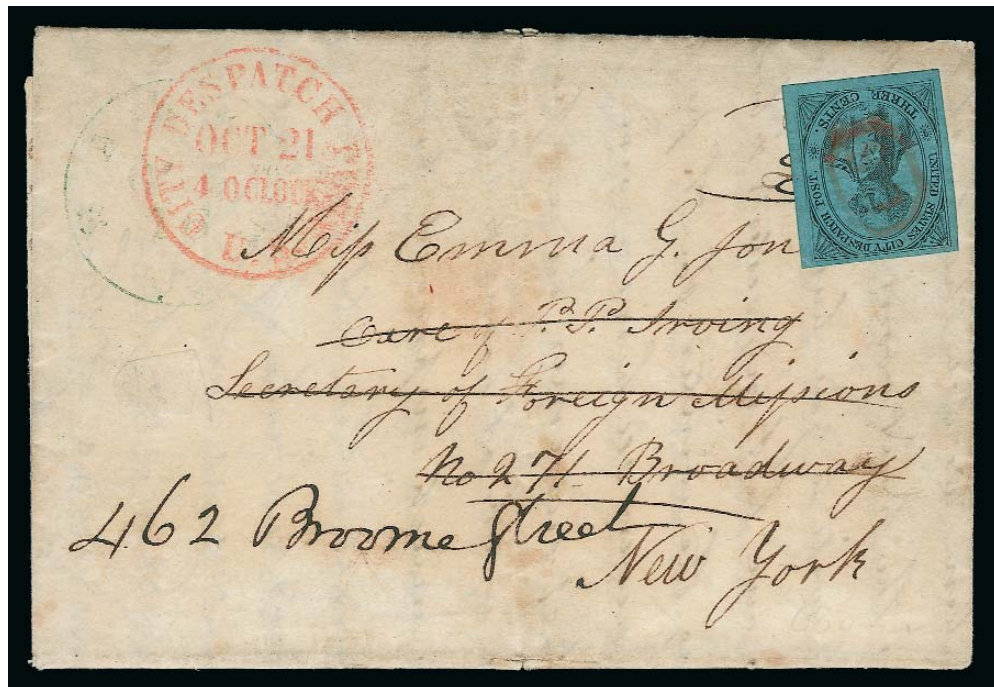 CITY DESPATCH
OCT 21
4 OCLOCK
UNITED STATES CITY DESPATCH POST
THREE CENTS
Miss Emma G. Jon
Care of P.P. Irving
Secretary of Foreign Missions
No 271 Broadway
462 Broome Street
New York